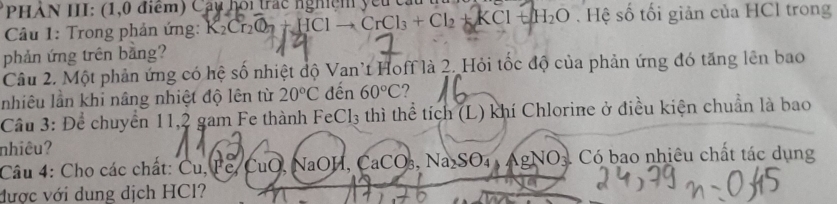 PHẦN III: (1,0 điểm) Câu hỏi trắc nghiệm yêu cầu
Câu 1: Trong phản ứng: K₂Cr₂O₇ + HCl → CrCl₃ + Cl₂ + KCl + H₂O . Hệ số tối giản của HCl trong
14
phản ứng trên bằng?
7
Câu 2. Một phản ứng có hệ số nhiệt độ Van't Hoff là 2. Hỏi tốc độ của phản ứng đó tăng lên bao
nhiêu lần khi nâng nhiệt độ lên từ 20°C đến 60°C?
16
Câu 3: Để chuyển 11,2 gam Fe thành FeCl₃ thì thể tích (L) khí Chlorine ở điều kiện chuẩn là bao
nhiêu?
Câu 4: Cho các chất: Cu, Fe, CuO, NaOH, CaCO₃, Na₂SO₄, AgNO₃. Có bao nhiêu chất tác dụng
được với dung dịch HCl?
24,79